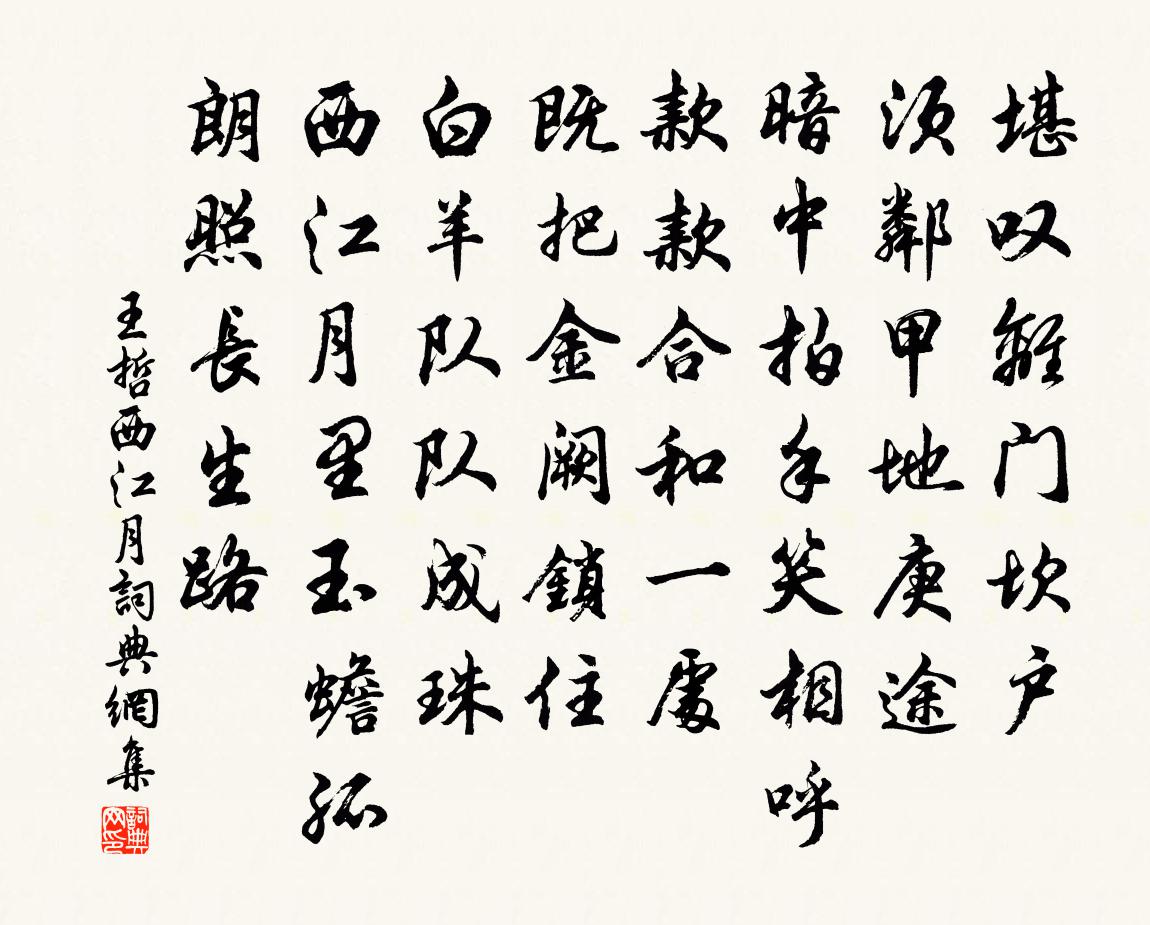 堪叹離门坎户
须鄰甲地庚途
暗中拍手笑相呼
款款合和一處
既把金阙鎖住
白羊队队成珠
西江月里玉蟾孤
朗照長生路
王哲西江月詞典網集
詞典网印